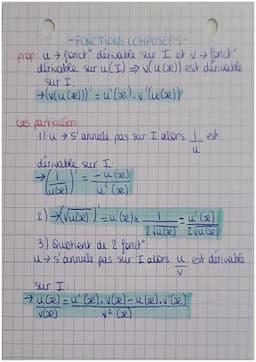 - FONCTIONS COMPOSÉES -
prop: u → fonct° dérivable sur I et v → fonct°
dérivable sur u(I) ⇒ v(u(x)) est dérivable
sur I.
→ (v(u(x)))' = u'(x).v'(u(x))
cas particulier:
1) u → s'annule pas sur I alors 1/u est
dérivable sur I.
→ (1/u(x))' = -u(x)/u'(x)
2) → (√u(x))' = u'(x) x 1/2√u(x) = u'(x)/2√u(x)
3) Quotient de 2 fonct°.
u → s'annule pas sur I alors u/v est dérivable
sur I.
→ u(x)/v(x) = u'(x).v(x) - u(x).v'(x)/v²(x)